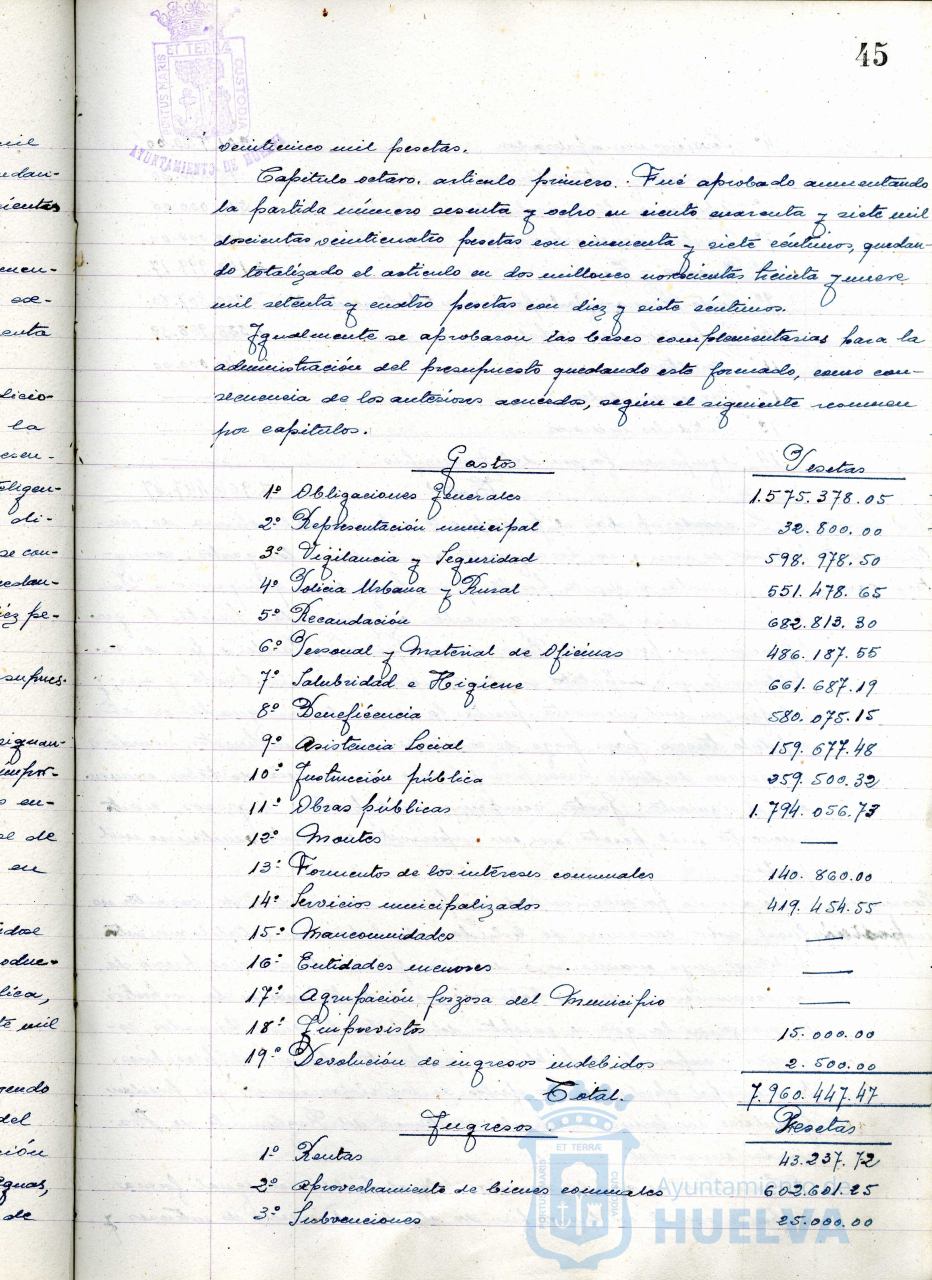 45
PORTUS MARIS ET TERRÆ CUSTODIA
AYUNTAMIENTO DE HUELVA
veinticinco mil pesetas.
Capítulo octavo. artículo primero. Fué aprobado aumentando
la partida número sesenta y ocho en ciento cuarenta y siete mil
doscientas veinticuatro pesetas con cincuenta y siete céntimos, quedan-
do totalizado el artículo en dos millones novecientas treinta y nueve
mil setenta y cuatro pesetas con diez y siete céntimos.
Igualmente se aprobaron las bases complementarias para la
administración del presupuesto quedando este formado, como con-
secuencia de los anteriores acuerdos, según el siguiente resumen
por capítulos.
Gastos Pesetas
1º Obligaciones generales 1.575.378.05
2º Representación municipal 32.800.00
3º Vigilancia y Seguridad 598.978.50
4º Policia Urbana y Rural 551.478.65
5º Recaudación 682.813.30
6º Personal y Material de Oficinas 486.187.55
7º Salubridad e Higiene 661.687.19
8º Beneficencia 580.075.15
9º Asistencia Social 159.677.48
10º Instrucción pública 259.500.32
11º Obras públicas 1.794.056.73
12º Montes —
13º Formentos de los intereses comunales 140.860.00
14º Servicios municipalizados 419.454.55
15º Mancomunidades —
16º Entidades menores —
17º Agrupación forzosa del Municipio —
18º Imprevistos 15.000.00
19º Devolución de ingresos indebidos 2.500.00
Total. 7.960.447.47
Ingresos Pesetas
1º Rentas 43.237.72
2º Aprovechamiento de bienes comunales 602.601.25
3º Subvenciones 25.000.00
PORTUS MARIS ET TERRÆ CUSTODIA
Ayuntamiento de
HUELVA